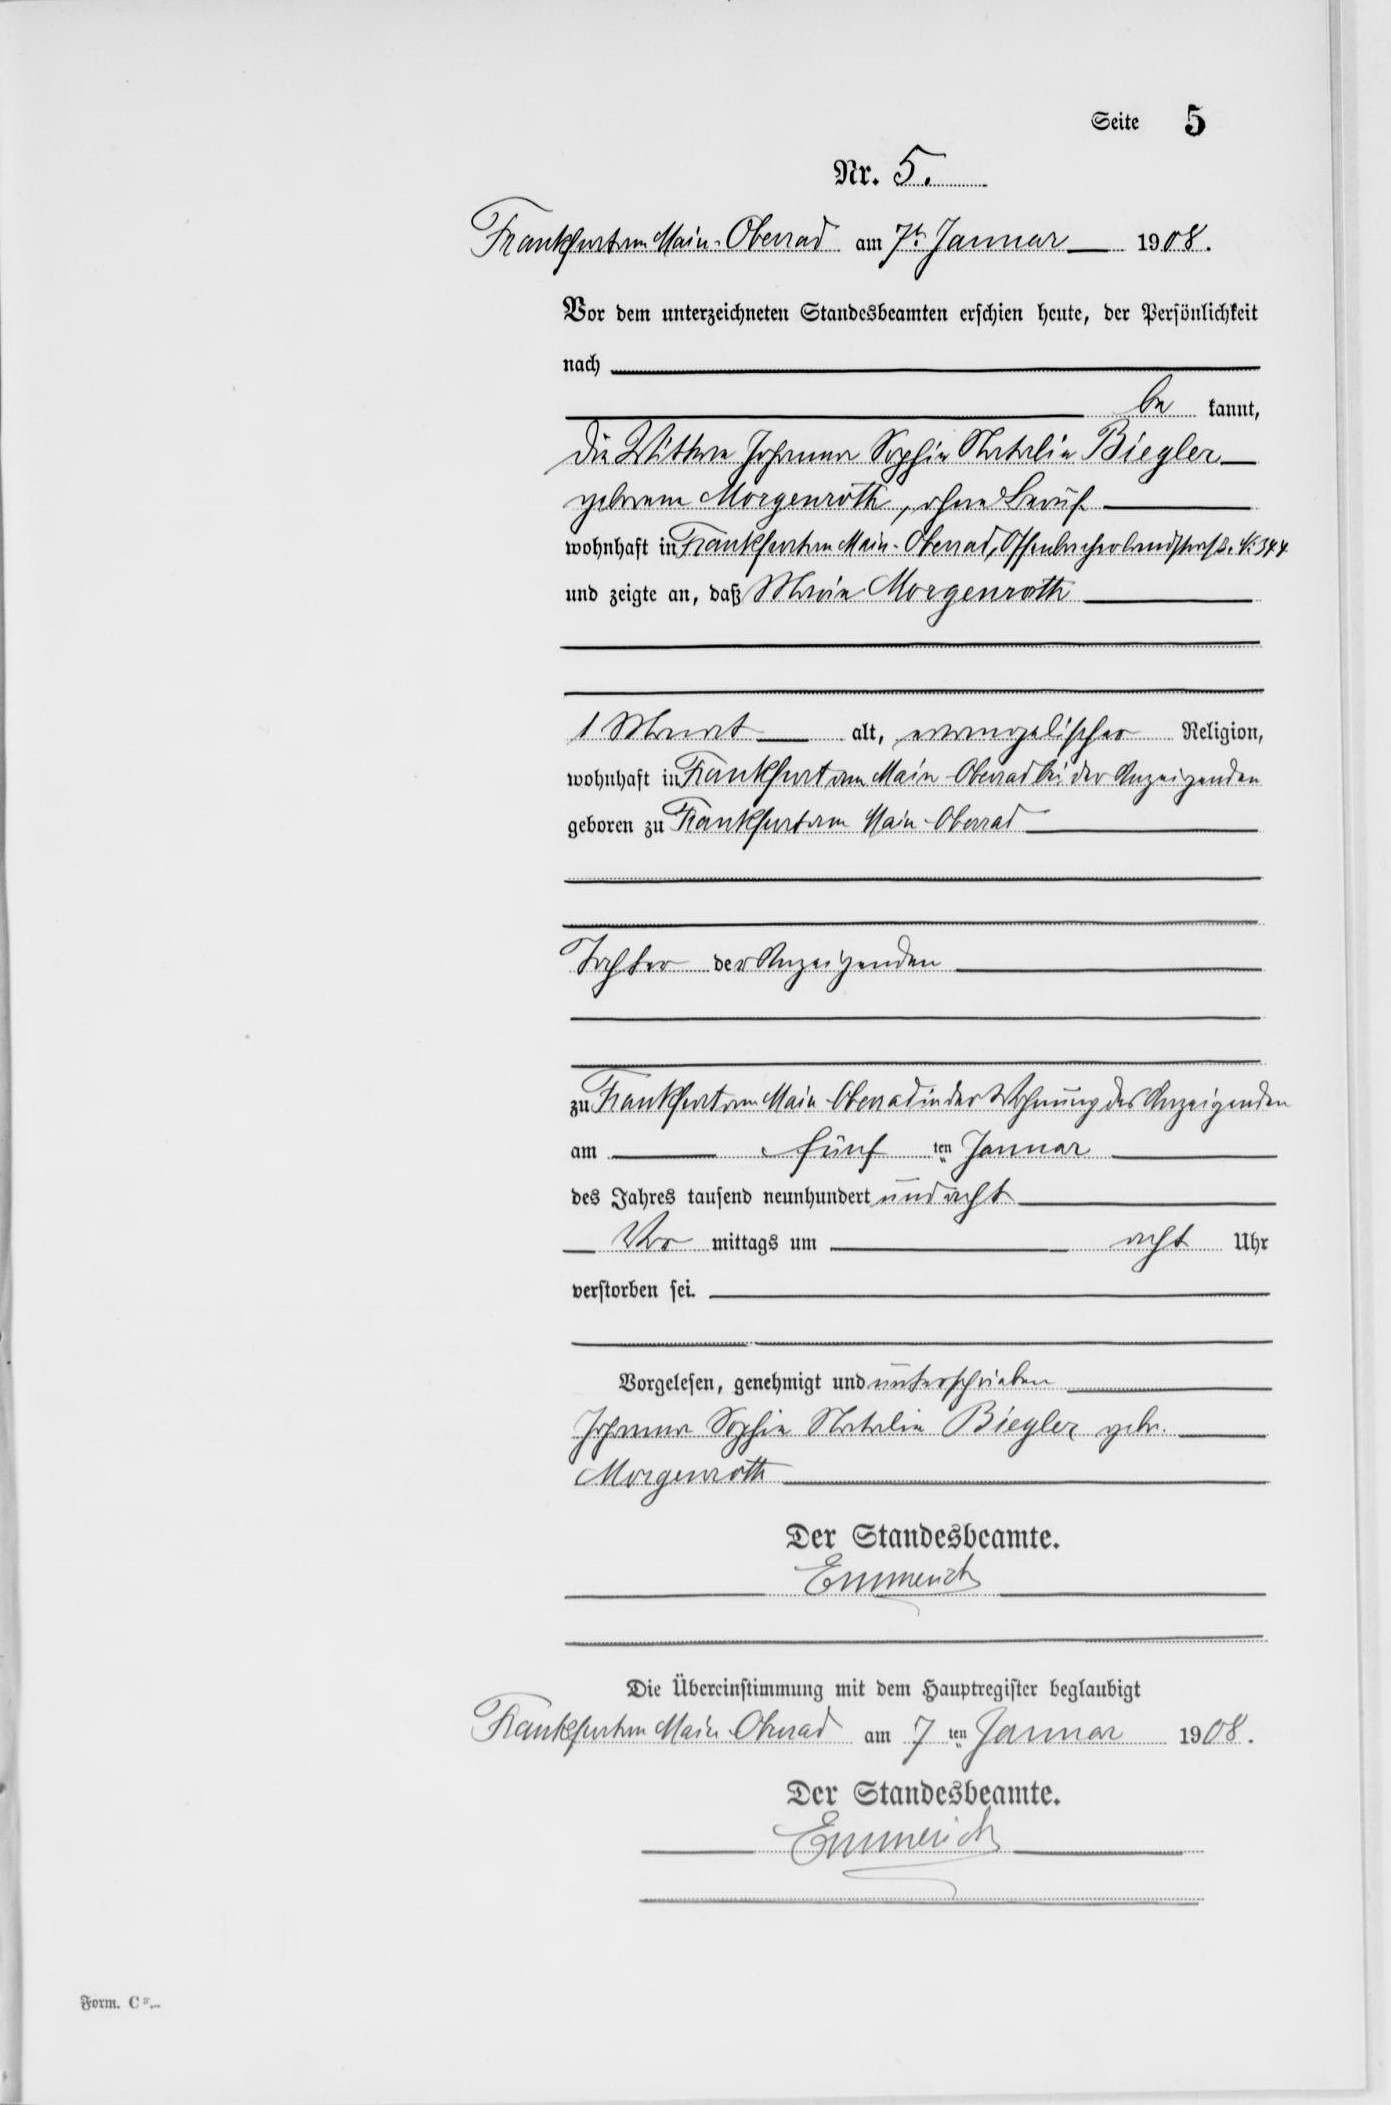 Seite 5
Nr. 5.
Frankfurt am Main-Oberrad am 7ten Januar 1908.
Vor dem unterzeichneten Standesbeamten erschien heute, der Persönlichkeit
nach
be kannt,
die Witwe Johanna Sophie Natalie Biegler
geborene Morgenroth, ohne Beruf
wohnhaft in Frankfurt am Main-Oberrad, Offenbacherlandstraße № 344
und zeigte an, daß Maria Morgenroth
1 Monat alt, evangelischer Religion,
wohnhaft in Frankfurt am Main-Oberrad bei der Anzeigenden
geboren zu Frankfurt am Main-Oberrad
Tochter der Anzeigenden
zu Frankfurt am Main-Oberrad in der Wohnung der Anzeigenden
am fünf ten Januar
des Jahres tausend neunhundert und acht
Vor mittags um acht Uhr
verstorben sei.
Vorgelesen, genehmigt und unterschrieben
Johanna Sophie Natalie Biegler geb.
Morgenroth
Der Standesbeamte.
Emmerich
Die Übereinstimmung mit dem Hauptregister beglaubigt
Frankfurt am Main-Oberrad am 7 ten Januar 1908.
Der Standesbeamte.
Emmerich
Form. C